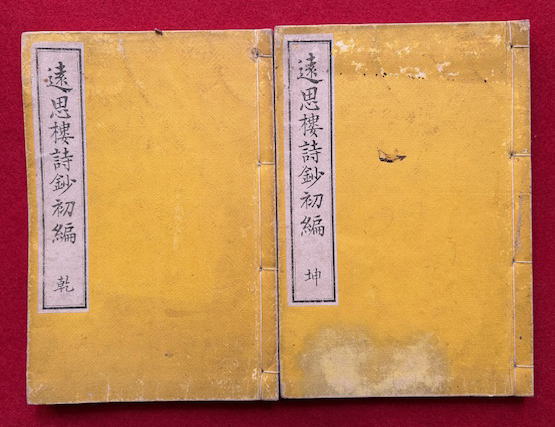 遠思樓詩鈔初編 乾
遠思樓詩鈔初編 坤